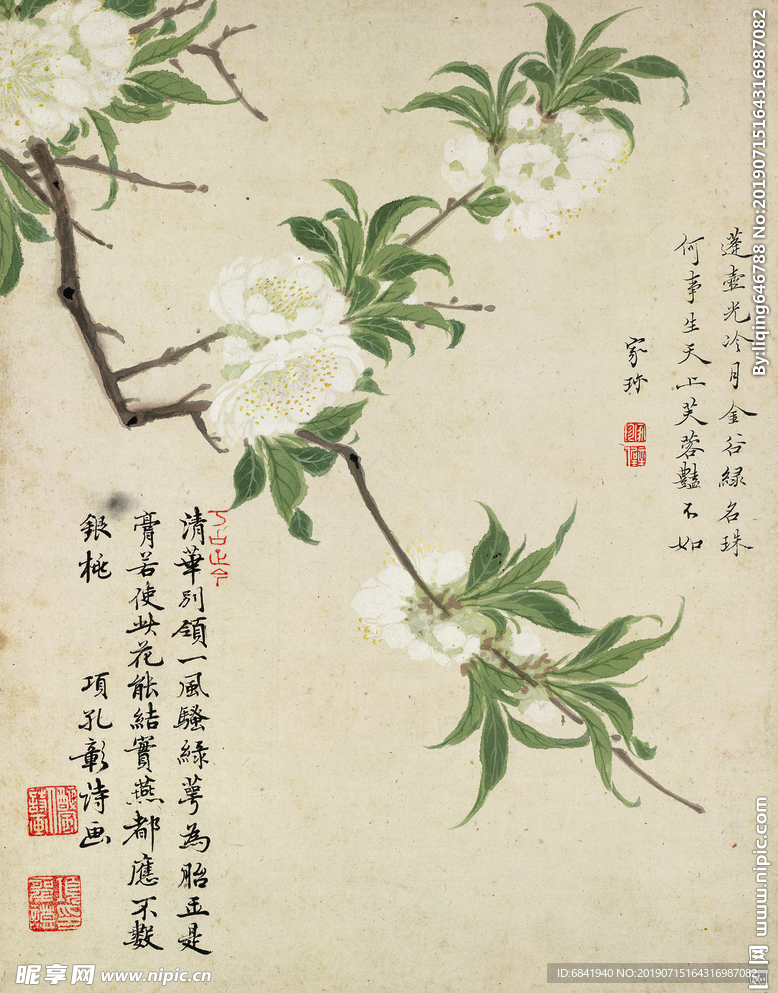 蓬壺光冷月金谷綠名珠
何事生天上芙蓉豔不如
家珍
清華別領一風騷綠萼為胎玉是
膏若使此花能結實燕都應不數
銀桃
項孔彰詩画
By:liqing646788 No:20190715164316987082
www.nipic.com
昵享网 www.nipic.cn
ID:6841940 NO:20190715164316987082